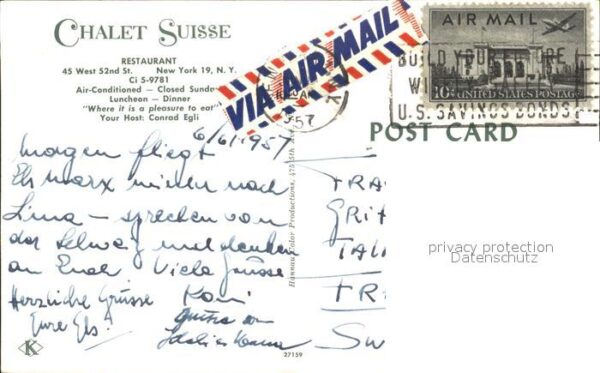 CHALET SUISSE
RESTAURANT
45 West 52nd St. New York 19, N. Y.
Ci 5-9781
Air-Conditioned — Closed Sunday
Luncheon — Dinner
"Where it is a pleasure to eat"
Your Host: Conrad Egli
VIA AIR MAIL
57
AIR MAIL
10¢ UNITED STATES POSTAGE
BUILD YOUR
U.S. SAVINGS BONDS
POST CARD
6/6/1957
morgen fliegt
nach
Lima – sprechen von
der Schweiz und denken
an Euch Viele Grüsse
Herzliche Grüsse Koni
Eure Els!
Hannau Color Productions, 475 5th
TRA
GRI
TA
TR
SW
privacy protection
Datenschutz
K
27159